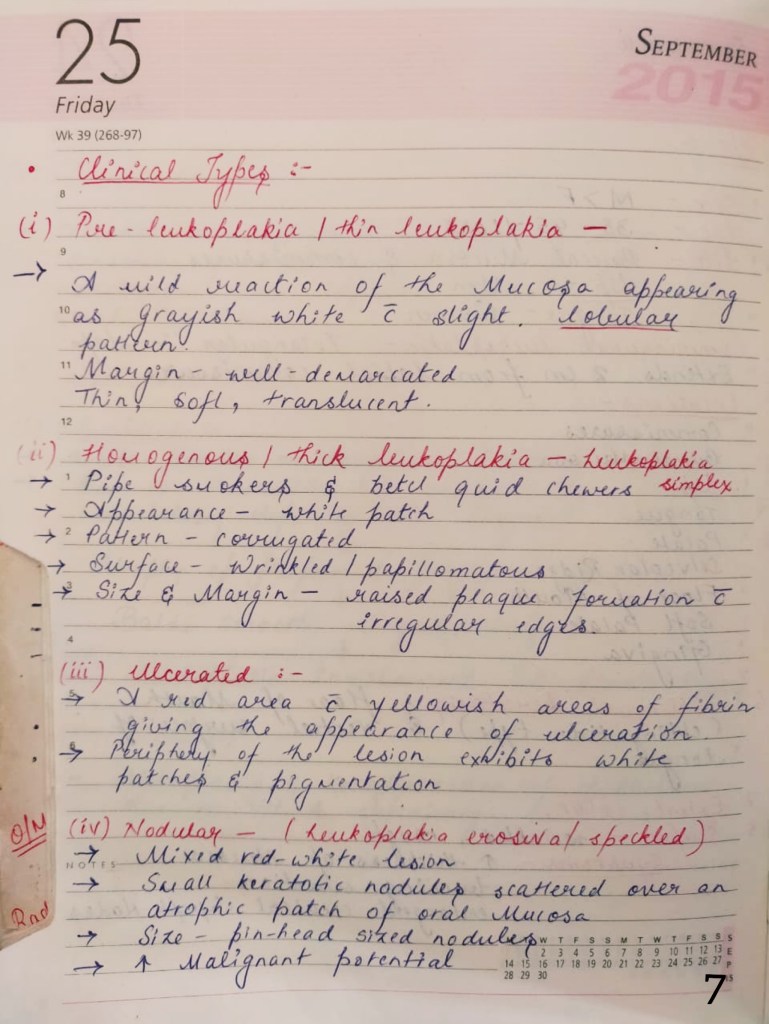 25
SEPTEMBER
2015
Friday
Wk 39 (268-97)
• Clinical Types :-
8
(i) Pre-leukoplakia / thin leukoplakia —
9
→ A mild reaction of the Mucosa appearing
10 as grayish white c̄ slight. lobular
pattern.
11 Margin - well-demarcated
Thin, soft, translucent.
12
(ii) Homogenous / thick leukoplakia — Leukoplakia
→ 1 Pipe smokers & betel quid chewers simplex
→ Appearance - white patch
→ 2 Pattern - corrugated
→ Surface - Wrinkled / papillomatous
→ 3 Size & Margin - raised plaque formation c̄
irregular edges.
4
(iii) Ulcerated :-
→ 5 A red area c̄ yellowish areas of fibrin
giving the appearance of ulceration.
→ 6 Periphery of the lesion exhibits white
patches & pigmentation
O/M
(iv) Nodular - (Leukoplakia erosiva / speckled)
NOTES
→ Mixed red-white lesion
→ Small keratotic nodules scattered over an
atrophic patch of oral Mucosa
Rnd
→ Size - pin-head sized nodules
→ ↑ Malignant potential
W T F S S M T W T F S S S
2 3 4 5 6 7 8 9 10 11 12 13 E
14 15 16 17 18 19 20 21 22 23 24 25 26 27 P
28 29 30
7